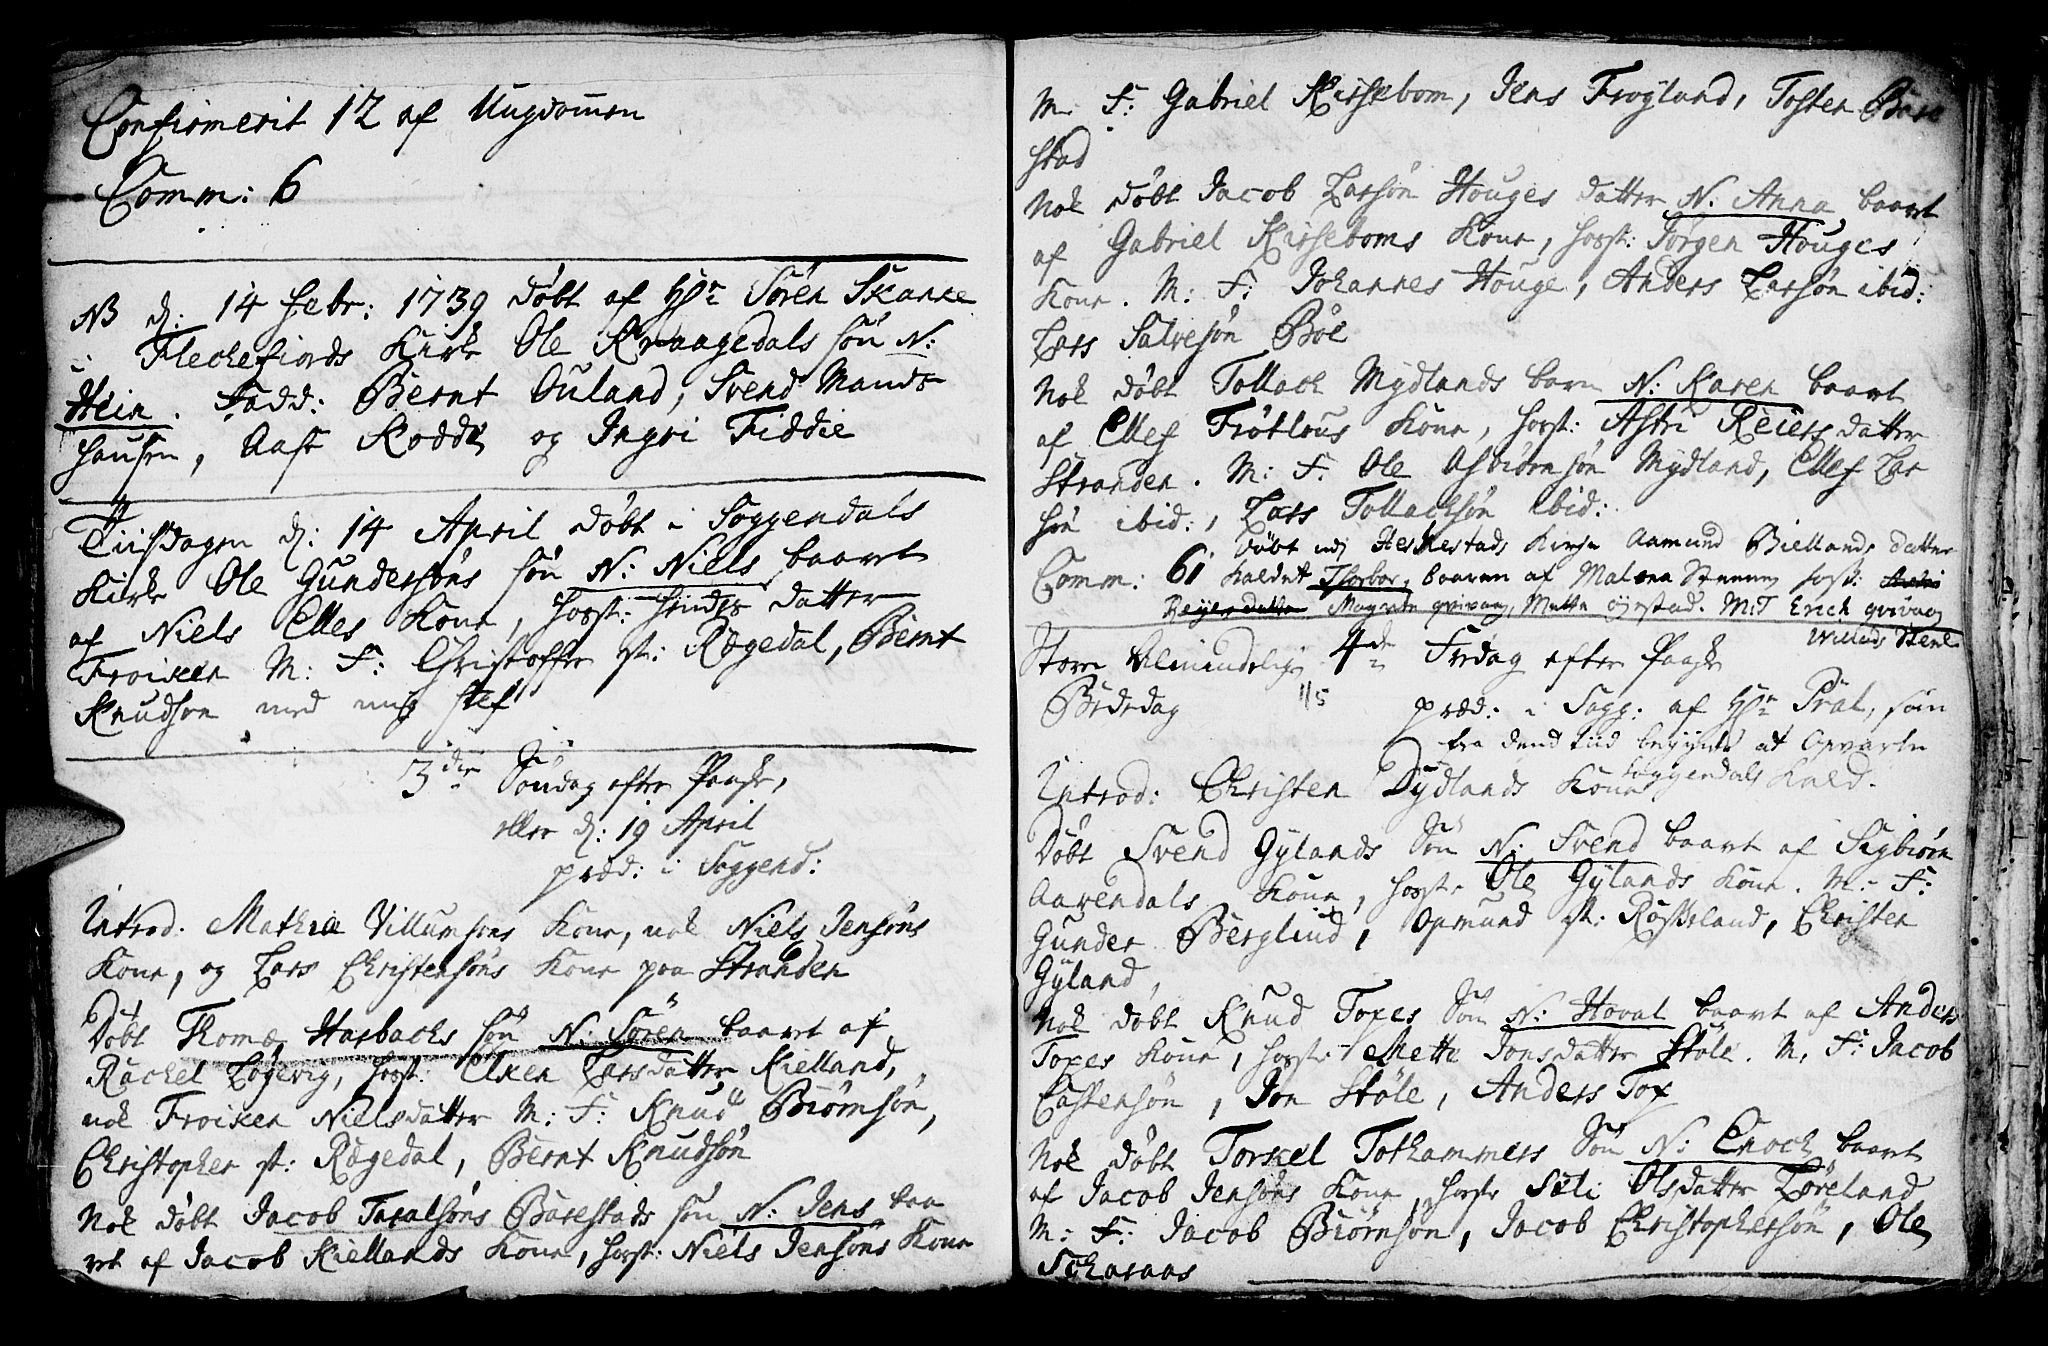 Confirmerit 12 af Ungdommen
Comm: 6
NB d: 14 Febr: 1739 døbt af Hr Sören Skanke
i Fleckefiords Kirke Ole Kraagedals søn N:
Hein. Fadd: Bernt Ouland, Svend Mands
hausen, Aase Rodde og Ingri Fiddie
Tiisdagen d: 14 April døbt i Soggendals
Kirke Ole Gundersøns søn N: Niels baaret
af Niels Elles Kone, forst: hendes datter
Froiken M: F: Christoffer st: Rægedal, Bernt
Knudsøn med mig self
3die Søndag efter Paaske,
eller d: 19 April
præd: i Soggend:
Introd. Mathia Villumsøns Kone, nok Niels Jensøns
Kone, og Lars Christensøns Kone paa Stranden
Døbt Thomæ Hasbachs søn N: Sören baaret af
Rachel Løgevig, forst: Elxen Larsdatter Kielland,
nok Froiken Nielsdatter M: F: Knud Biörnsøn,
Christopher st: Rægedal, Bernt Knudsøn
Nok døbt Jacob Taralsøns Barestads søn N: Jens baa
ret af Jacob Kiellands Kone, forst: Niels Jensøns Kone
M: F: Gabriel Kirsebom, Jens Frøyland, Tosten Bare
stad
Nok døbt Jacob Larsøn Houges datter N: Anna baaret
af Gabriel Kirseboms Kone, forst: Jörgen Houges
Kone. M: F: Johannes Houge, Anders Larsøn ibid:
Lars Salvesøn Böe
Nok døbt Tollach Mydlands barn N: Karen baaret
af Ellef Frötlous Kone, forst: Astri Reiersdatter
Stranden. M: F: Ole Asbiörnsøn Mydland, Ellef Lar
søn ibid:, Lars Tollachsøn ibid:
Døbt udj Heskestads Kirke Aamund Biellands datter
Comm: 61 kaldet Thorbor, baaren af Malena Steenen forst: Astri
Reyersdatter Magrete qvivaag, Mette øyestad. M: F Erich qvivaag
Willads Stene
Store Almindelig 4de Fredag efter Paaske
Bededag 1/5 præd: i Sogg: af Hr Pral, som
fra dend tiid begynte at Opvarte
Soggendals Kald.
Introd: Christen Dydlands Kone
Døbt Svend Gylands Søn N: Svend baaret af Sigbiörn
Aarendals Kone, forst: Ole Gylands Kone. M: F:
Gunder Bergliud, Opmund st: Rösseland, Christen
Gyland,
Nok døbt Knud Toxes Søn N: Hoval baaret af Anders
Toxes Kone, forst: Mette Jonsdatter Støle. M: F: Jacob
Castensøn, Jon Støle, Anders Tox
Nok døbt Torkel Tothammers Søn N: Enoch baaret
af Jacob Jensøns Kone, forst: Seli Olsdatter Løreland
M: F: Jacob Biörnsøn, Jacob Christophersøn, Ole
Scharaas